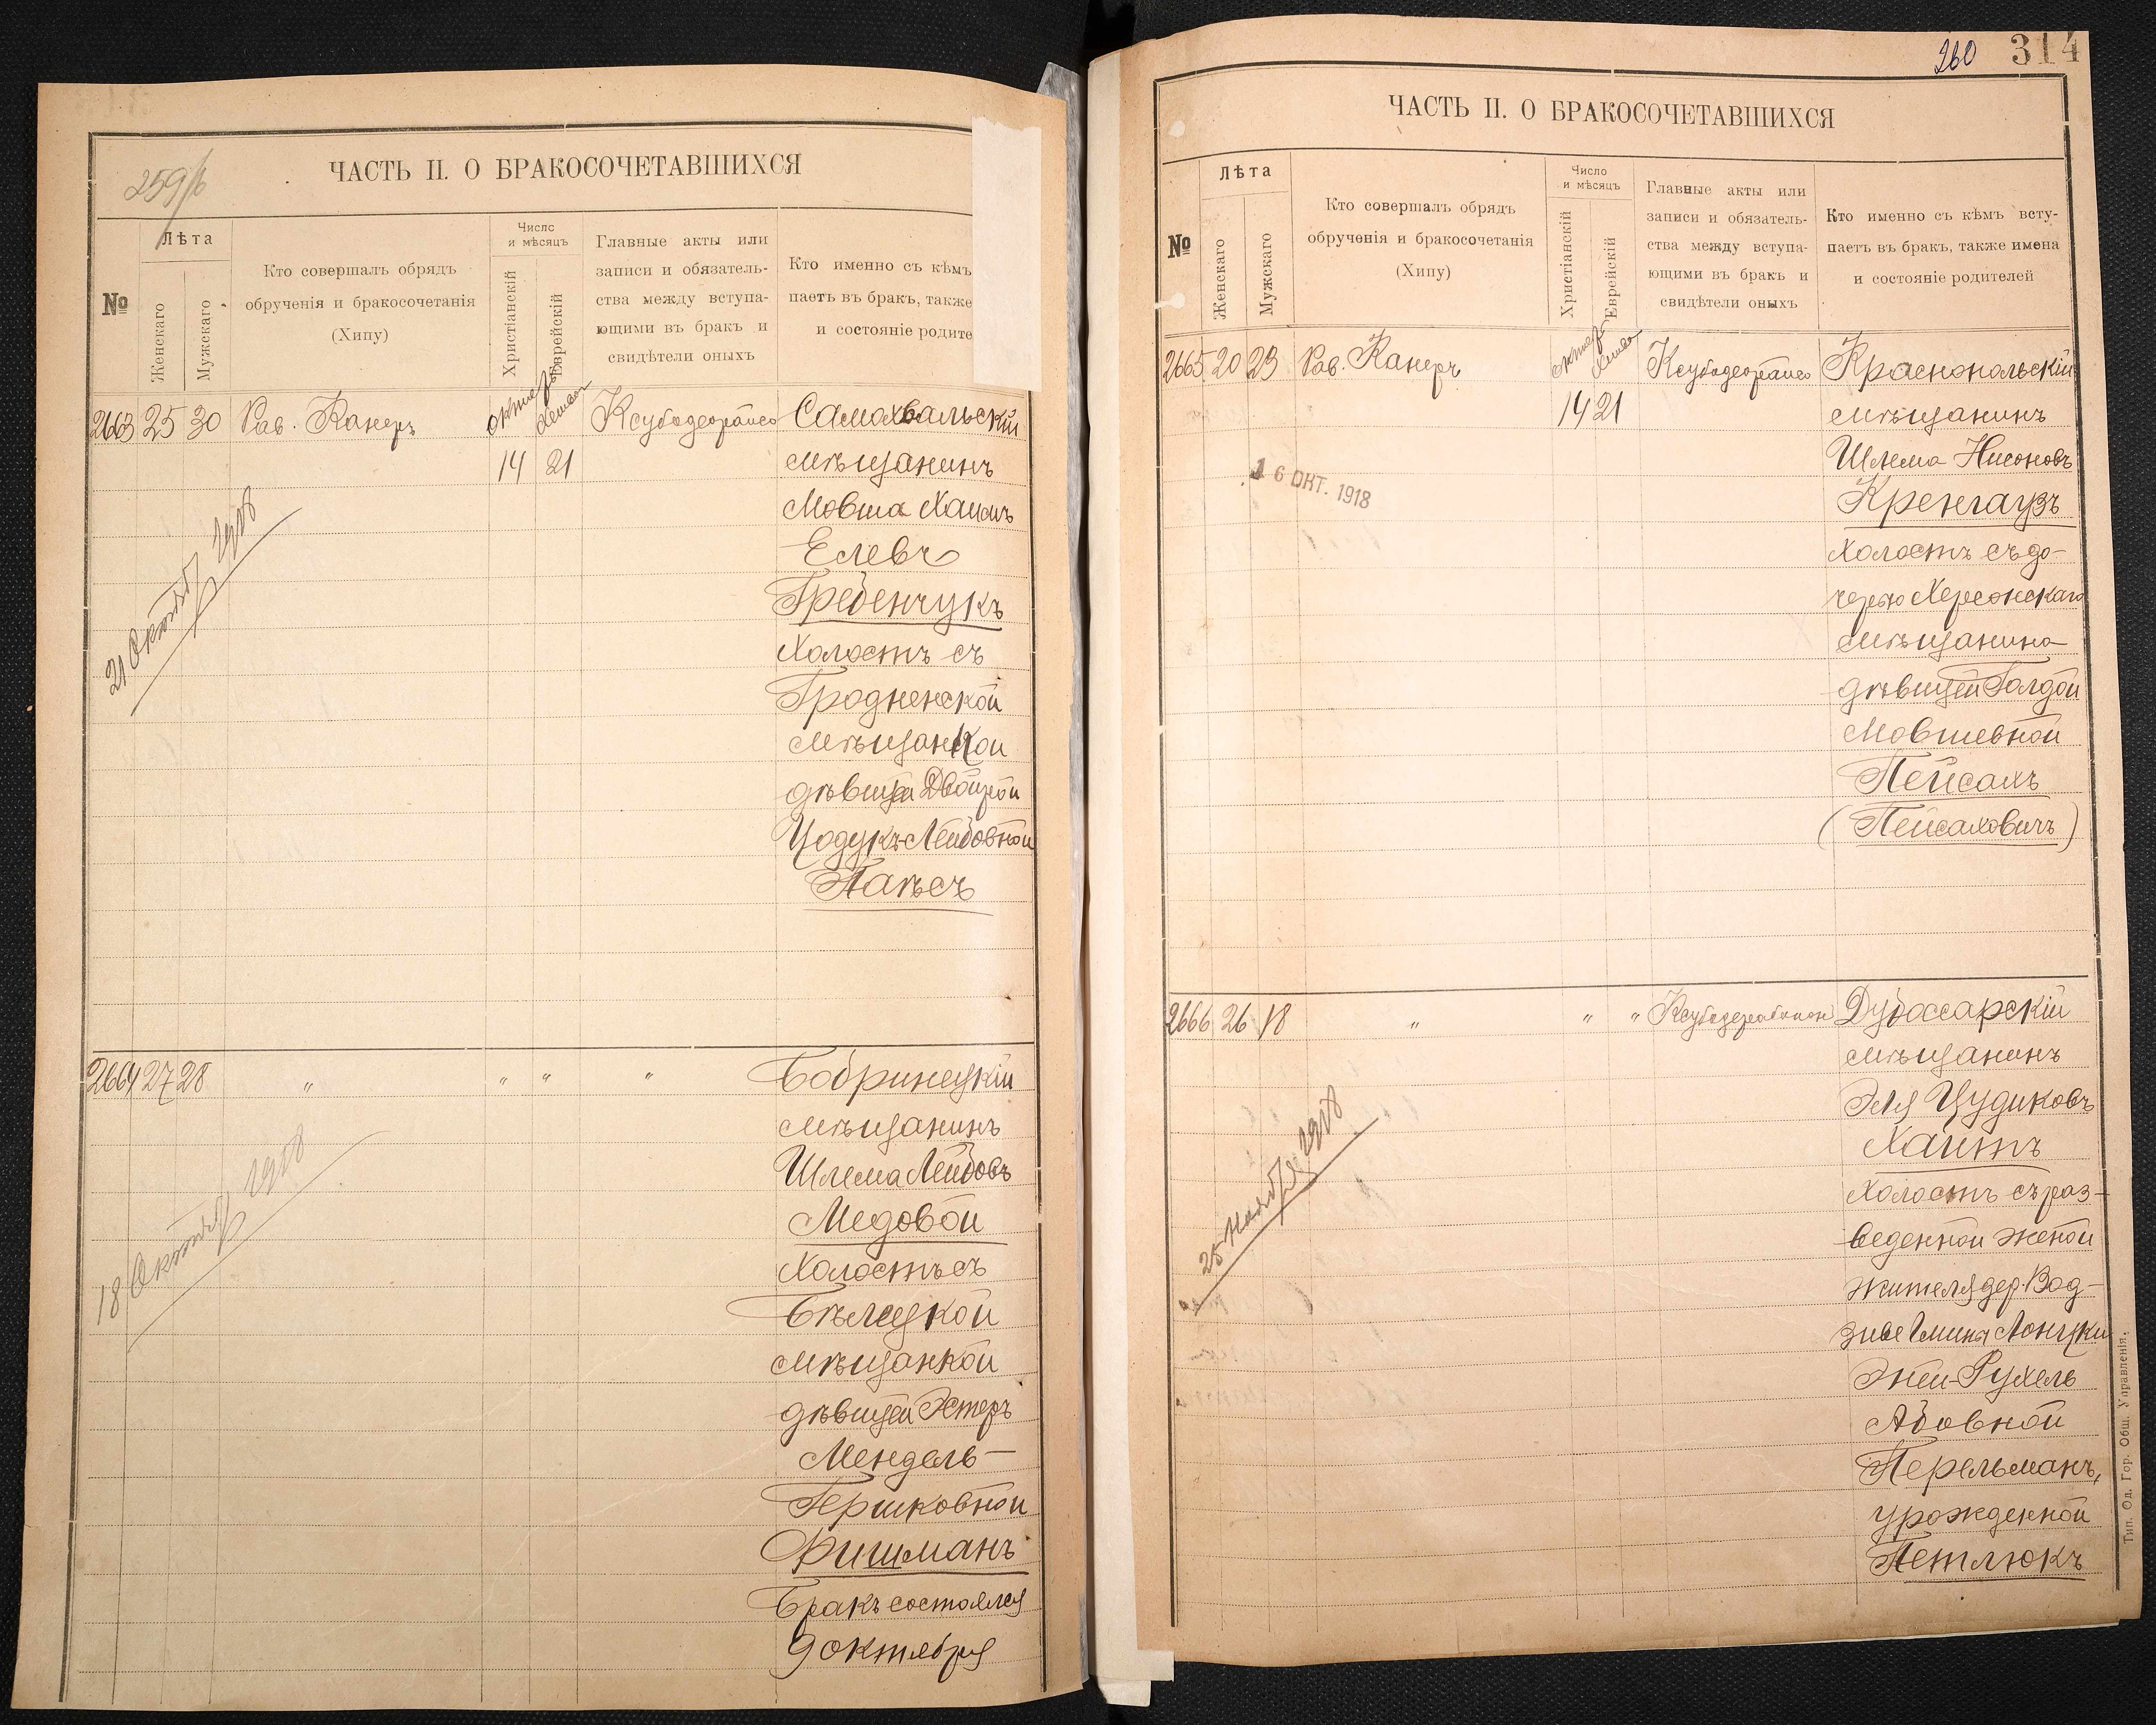 259/б
ЧАСТЬ II. О БРАКОСОЧЕТАВШИХСЯ
№
Лѣта
Женскаго
Мужскаго
Кто совершалъ обрядъ
обрученія и бракосочетанія
(Хипу)
Число
и мѣсяцъ
Христіанскій
Еврейскій
Главные акты или
записи и обязатель-
ства между вступа-
ющими въ бракъ и
свидѣтели оныхъ
Кто именно съ кѣмъ
паетъ въ бракъ, также
и состояніе родите
2663 25 30 Рав. Канеръ
14 21
Самохвальскій
мѣщанинъ
Мовша Хаимъ
Елевъ
Гребенчукъ
холостъ съ
Гродненской
мѣщанкой
дѣвицей Двойрой
Цодукъ-Лейбовной
Пагѣсъ
21 Октября 1918
2664 27 28 " " " "
Бобринецкій
мѣщанинъ
Шлема Лейбовъ
Медовой
холостъ съ
Бѣлецкой
мѣщанкой
дѣвицей Эстеръ
Мендель-
Гершковной
Фишманъ
Бракъ состоялся
9 октября
18 Октября 1918
260 314
ЧАСТЬ II. О БРАКОСОЧЕТАВШИХСЯ
№
Лѣта
Женскаго
Мужскаго
Кто совершалъ обрядъ
обрученія и бракосочетанія
(Хипу)
Число
и мѣсяцъ
Христіанскій
Еврейскій
Главные акты или
записи и обязатель-
ства между вступа-
ющими въ бракъ и
свидѣтели оныхъ
Кто именно съ кѣмъ всту-
паетъ въ бракъ, также имена
и состояніе родителей
2665 20 23 Рав. Канеръ
14 21
Краснопольскій
мѣщанинъ
Шлема Нисоновъ
Кренгаузъ
холостъ съ до-
черью Херсонскаго
мѣщанина
дѣвицей Голдой
Мовшевной
Пейсахъ
(Пейсаховичъ)
16 ОКТ. 1918
2666 26 18 " " "
Дубоссарскій
мѣщанинъ
Эля Цудиковъ
Хаитъ
холостъ съ раз-
веденной женой
жителя дер. Вод-
Рухель
Абовной
Перельманъ,
урожденной
Петлюкъ
25 Ноября 1918
Тип. Од. Гор. Общ. Управленія.